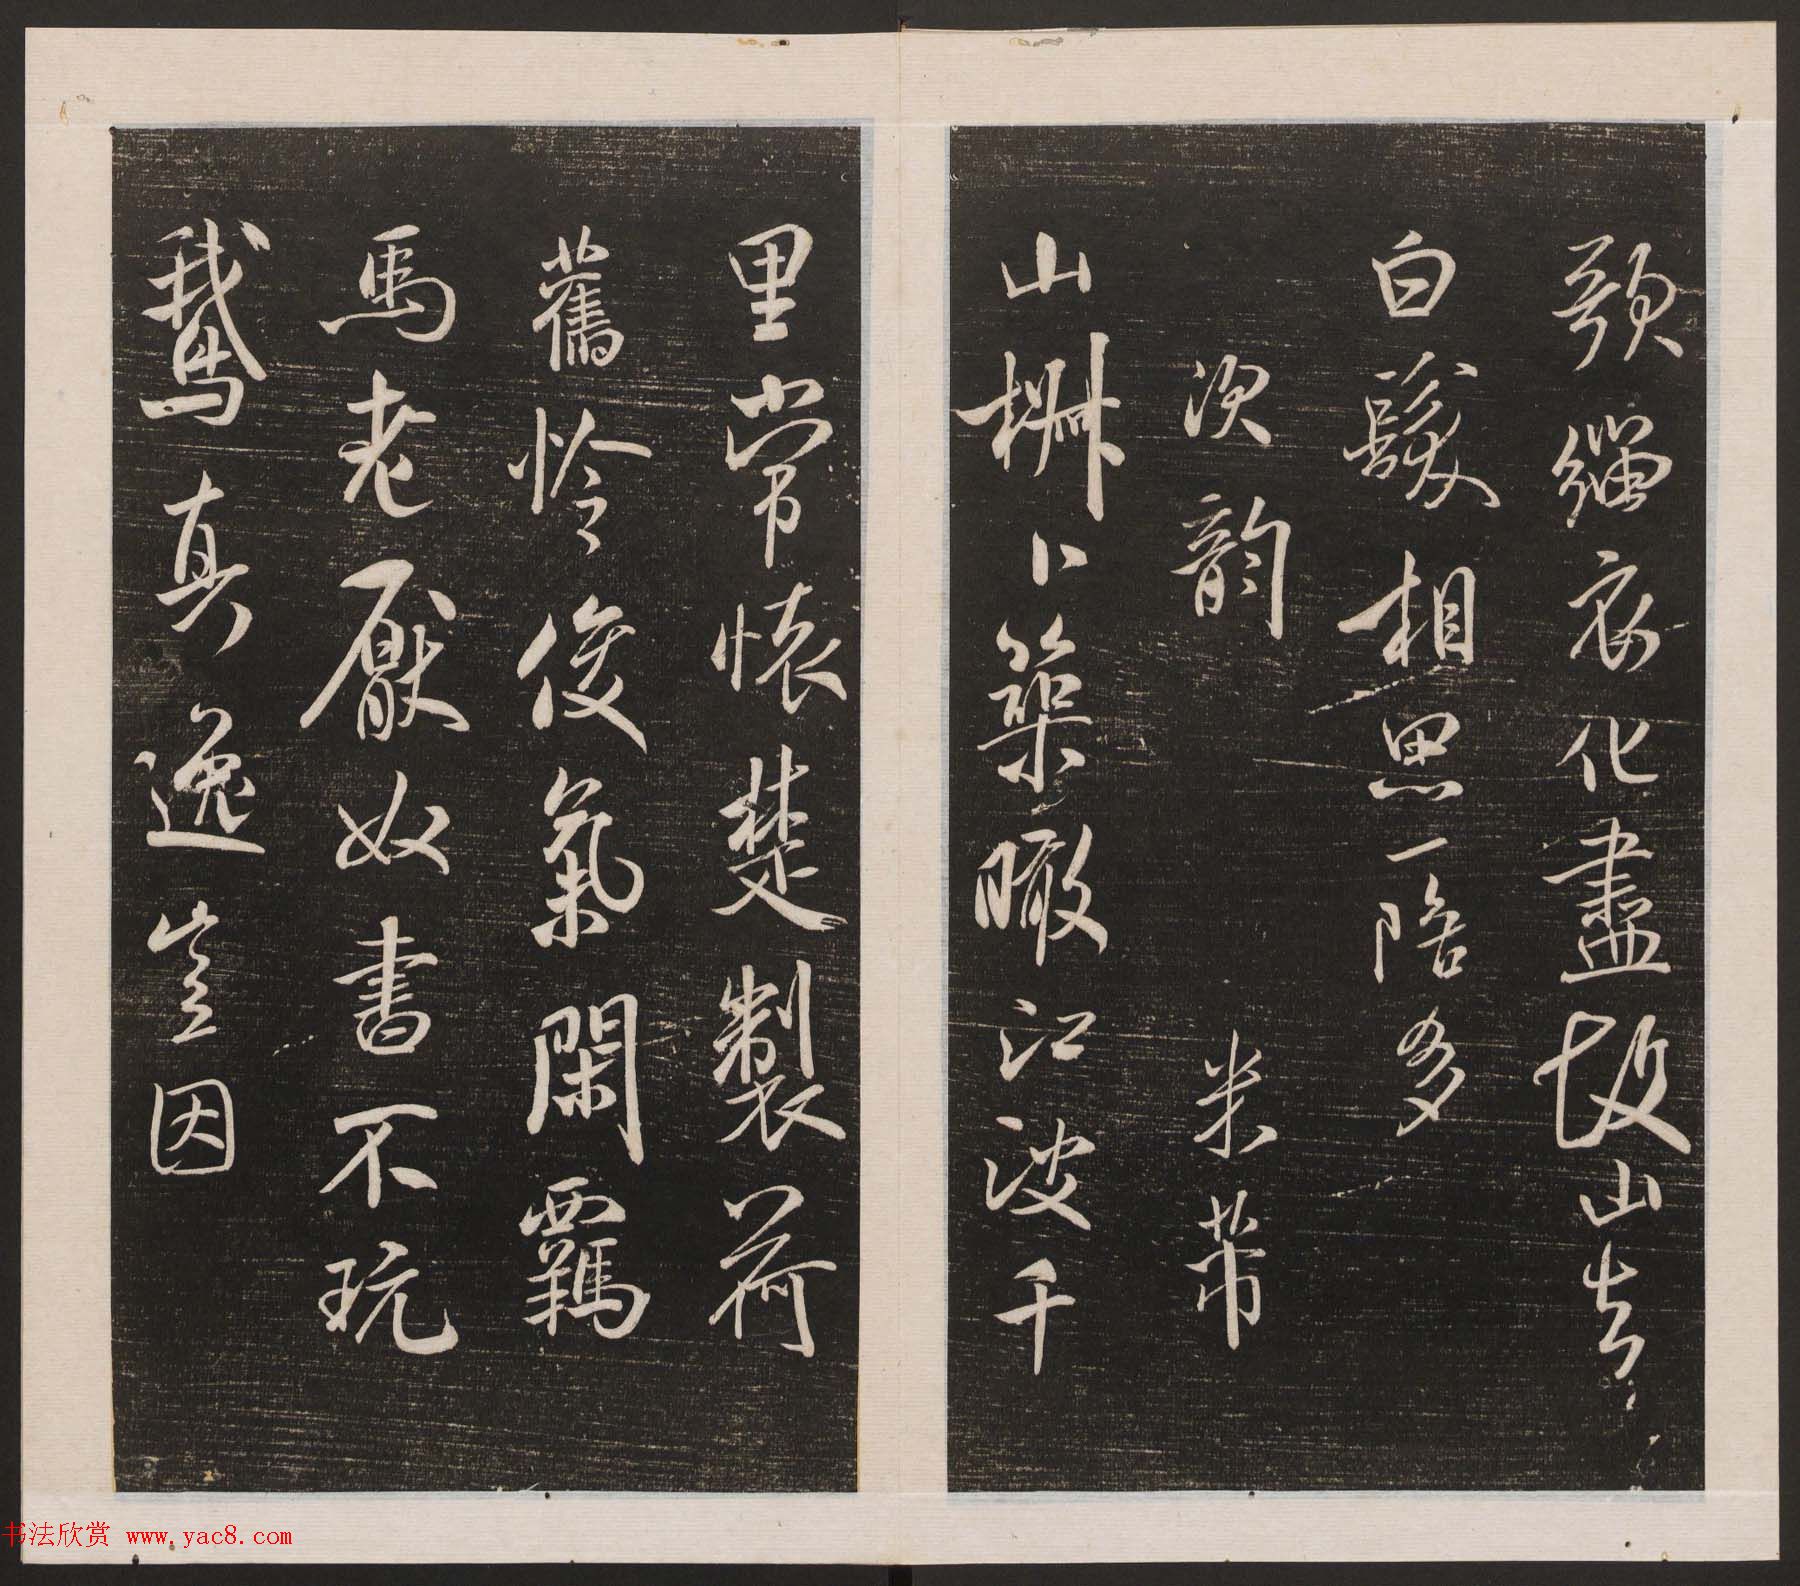 頸緇衣化盡故山去
白髮相思一陪多
次韻 米芾
山椒卜築瞰江波千
里常懷楚製荷
舊怜俊氣閑羈
馬老厭奴書不玩
鵝真逸豈因
书法欣赏 www.yac8.com